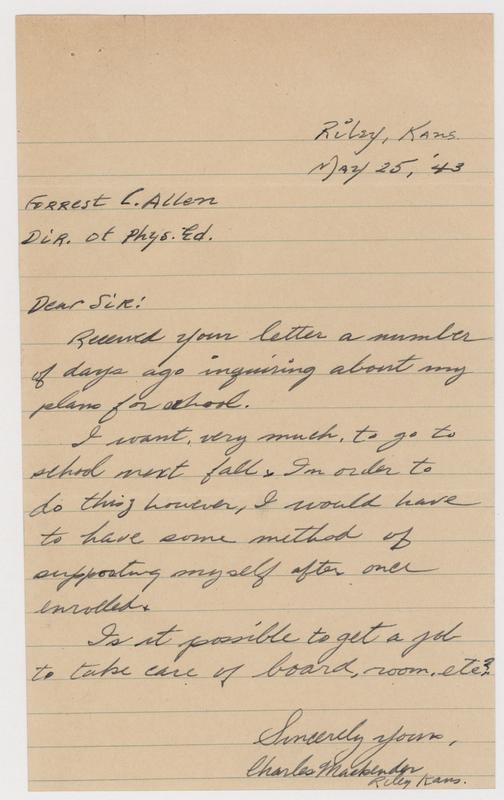 Riley, Kans.
May 25, '43
Forrest C. Allen
Dir. of Phys. Ed.
Dear Sir:
Received your letter a number
of days ago inquiring about my
plans for school.
I want, very much, to go to
school next fall. In order to
do this, however, I would have
to have some method of
supporting myself after once
enrolled.
Is it possible to get a job
to take care of board, room, etc?
Sincerely yours,
Charles Mackender
Riley Kans.